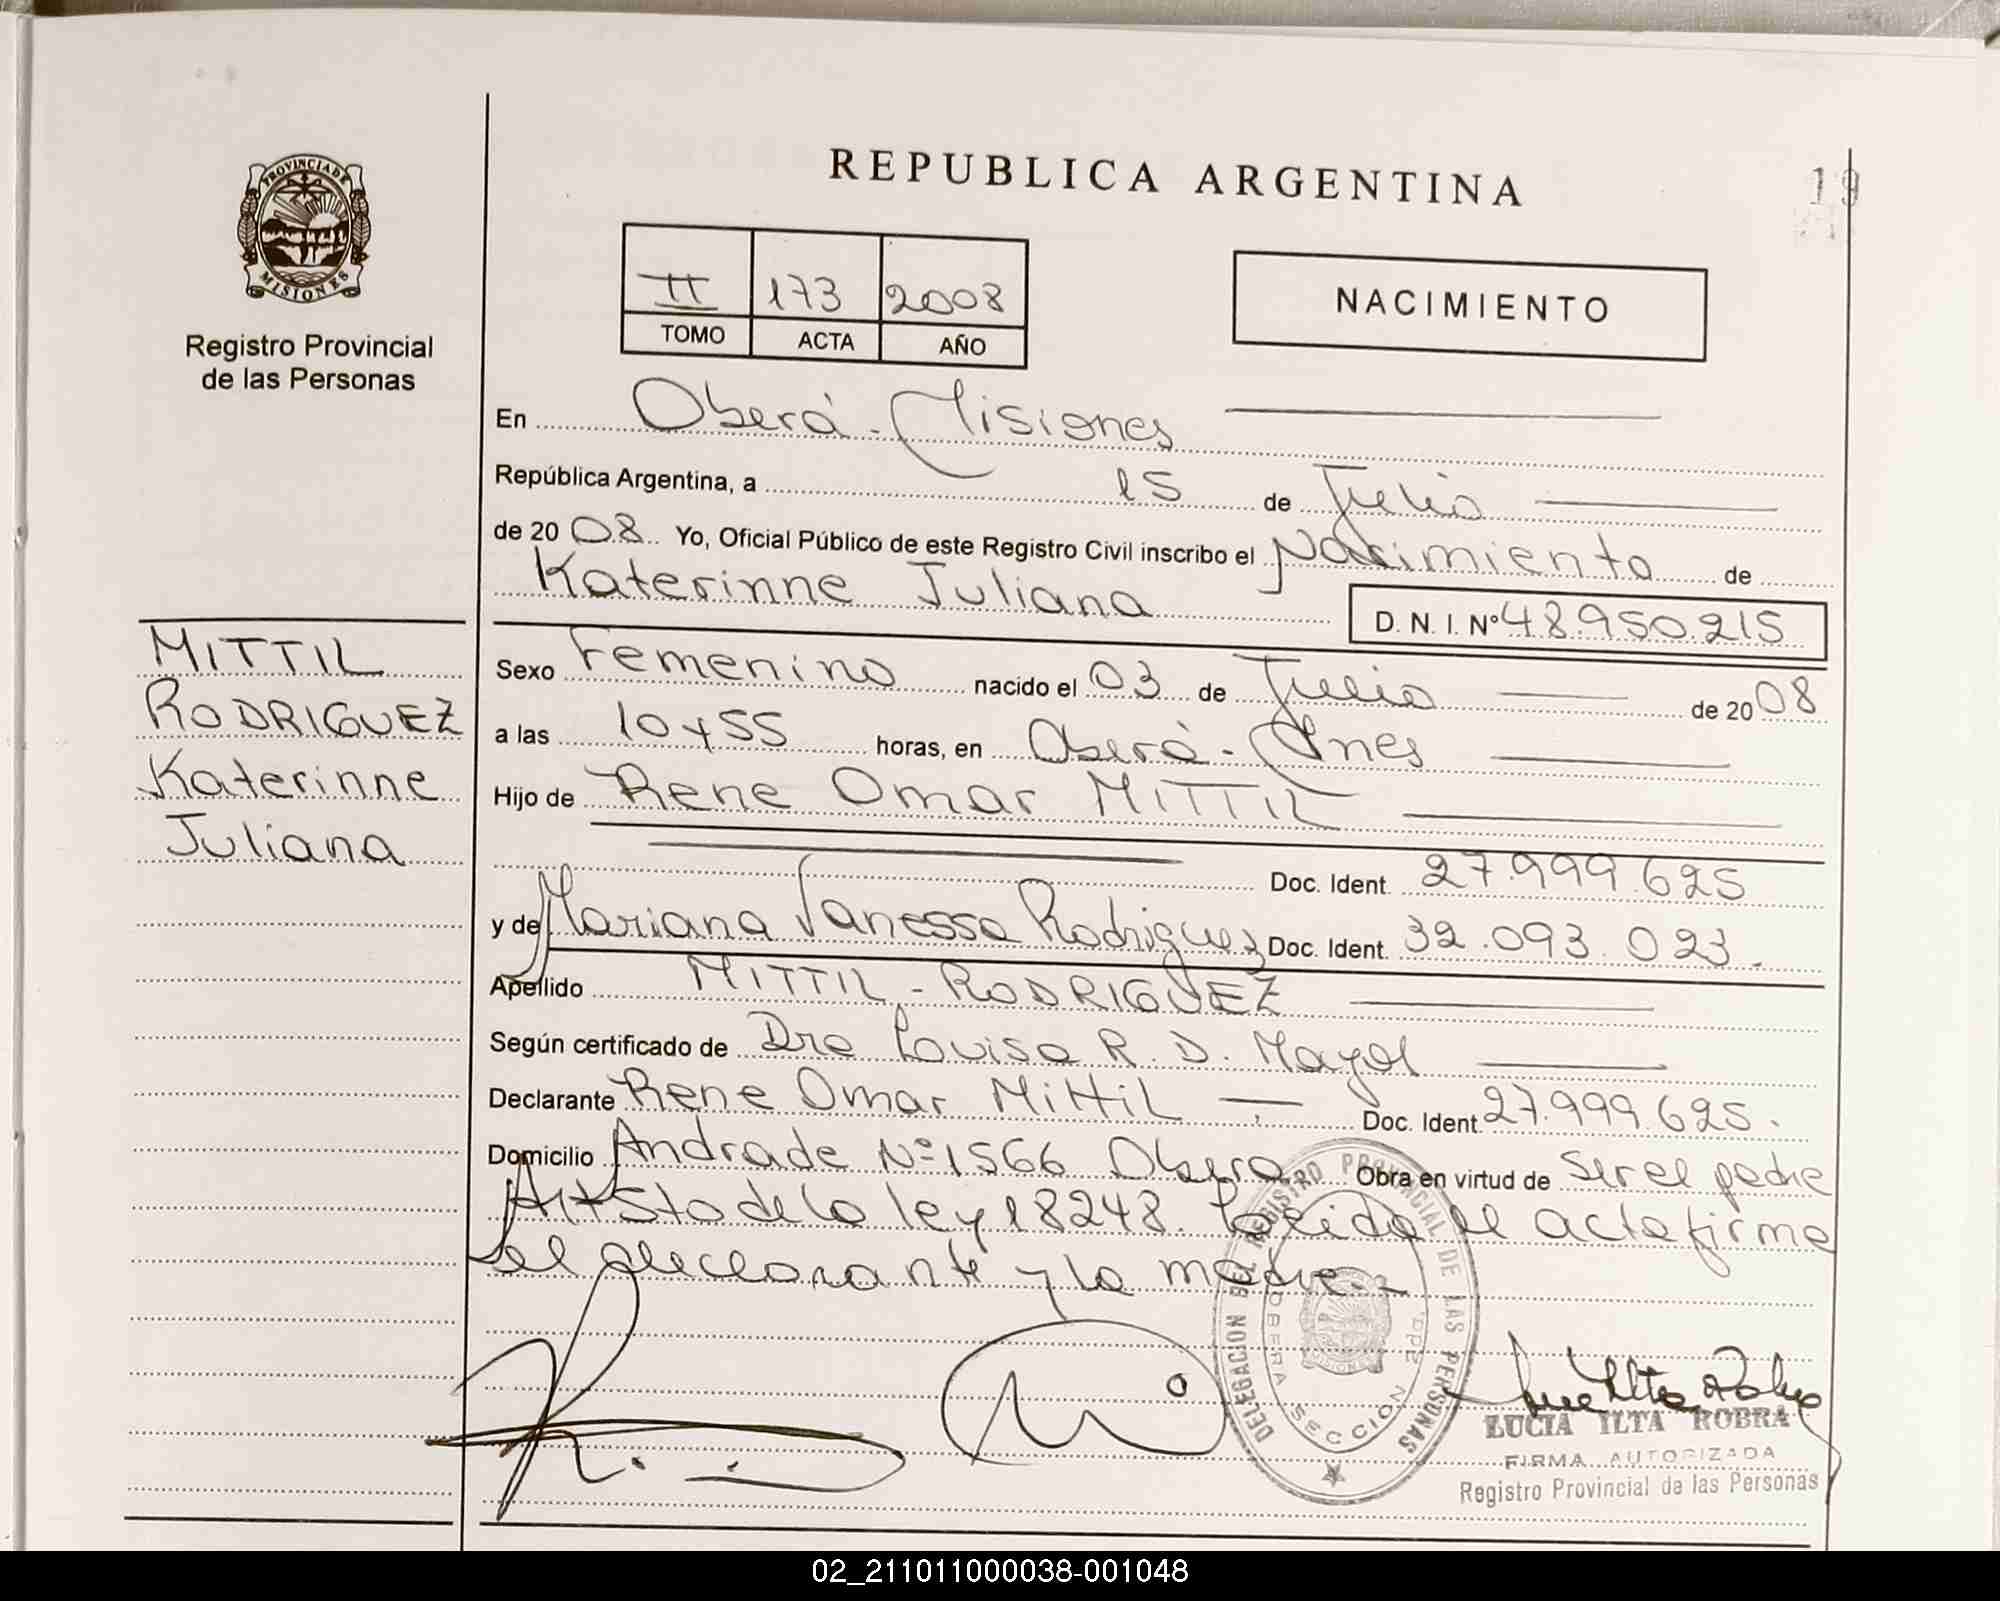 REPUBLICA ARGENTINA
19
PROVINCIA DE
MISIONES
Registro Provincial
de las Personas
II 173 2008
TOMO ACTA AÑO
NACIMIENTO
En Oberá - Misiones
República Argentina, a 15 de Julio
de 2008 Yo, Oficial Público de este Registro Civil inscribo el Nacimiento de
Katerinne Juliana
D. N. I. Nº 48.950.215
MITTIL
RODRIGUEZ
Katerinne
Juliana
Sexo Femenino nacido el 03 de Julio de 2008
a las 10 y 55 horas, en Oberá - Mnes
Hijo de Rene Omar MITTIL
Doc. Ident. 27.999.625
y de Mariana Vanessa Rodriguez Doc. Ident. 32.093.023.
Apellido MITTIL - RODRIGUEZ
Según certificado de Dra Louisa R. D. Mayol
Declarante Rene Omar Mittil Doc. Ident. 27.999.625.
Domicilio Andrade Nº 1566 Obera Obra en virtud de ser el padre
Art 5to de la ley 18248. Leida el acta firma
el declarante y la madre.-
DELEGACION DEL REGISTRO PROVINCIAL DE LAS PERSONAS
OBERA SECCION
MISIONES
LUCIA ILTA ROBRA
FIRMA AUTORIZADA
Registro Provincial de las Personas
02_211011000038-001048